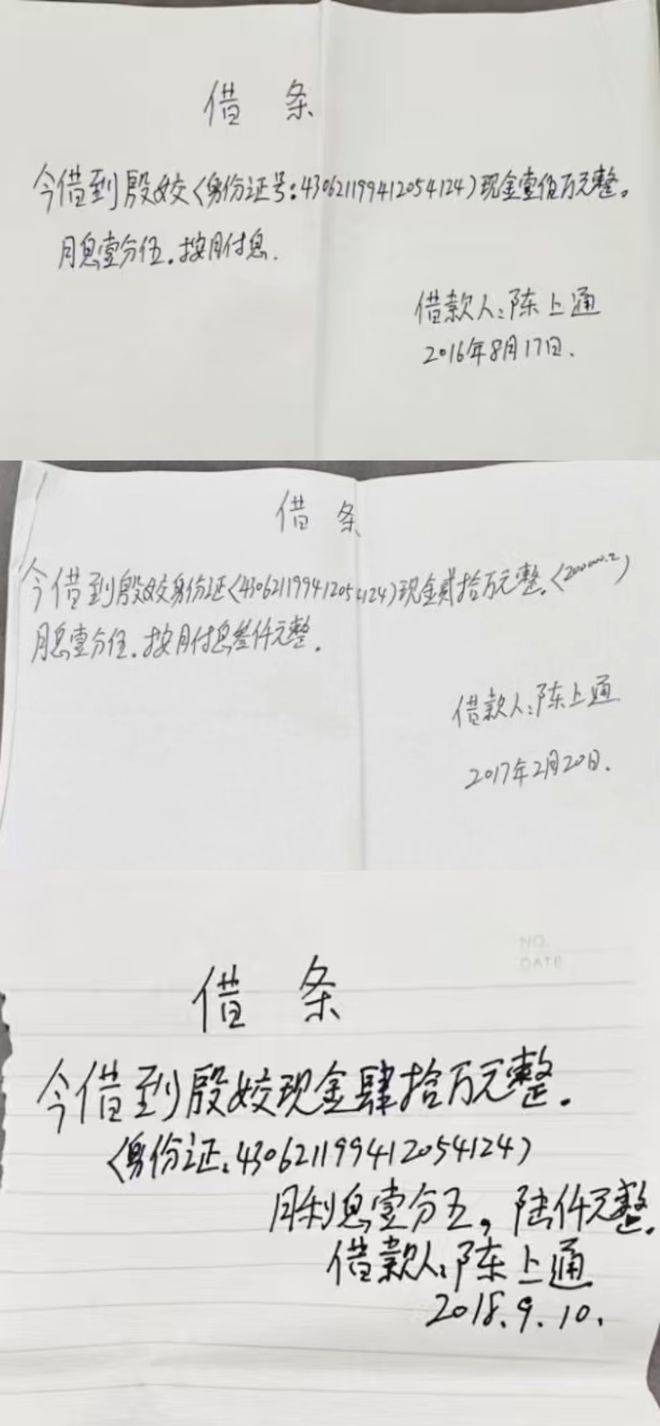 借 条
今借到殷姣〈身份证号:430621199412054124)现金壹佰万元整。
月息壹分伍.按月付息.
借款人:陈上通
2016年8月17日.
借 条
今借到殷姣身份证〈430621199412054124)现金贰拾万元整.
月息壹分伍.按月付息叁仟元整.
借款人:陈上通
2017年2月20日.
借 条
今借到殷姣现金肆拾万元整.
〈身份证:430621199412054124)
月利息壹分五,陆仟元整.
借款人:陈上通
2018.9.10.